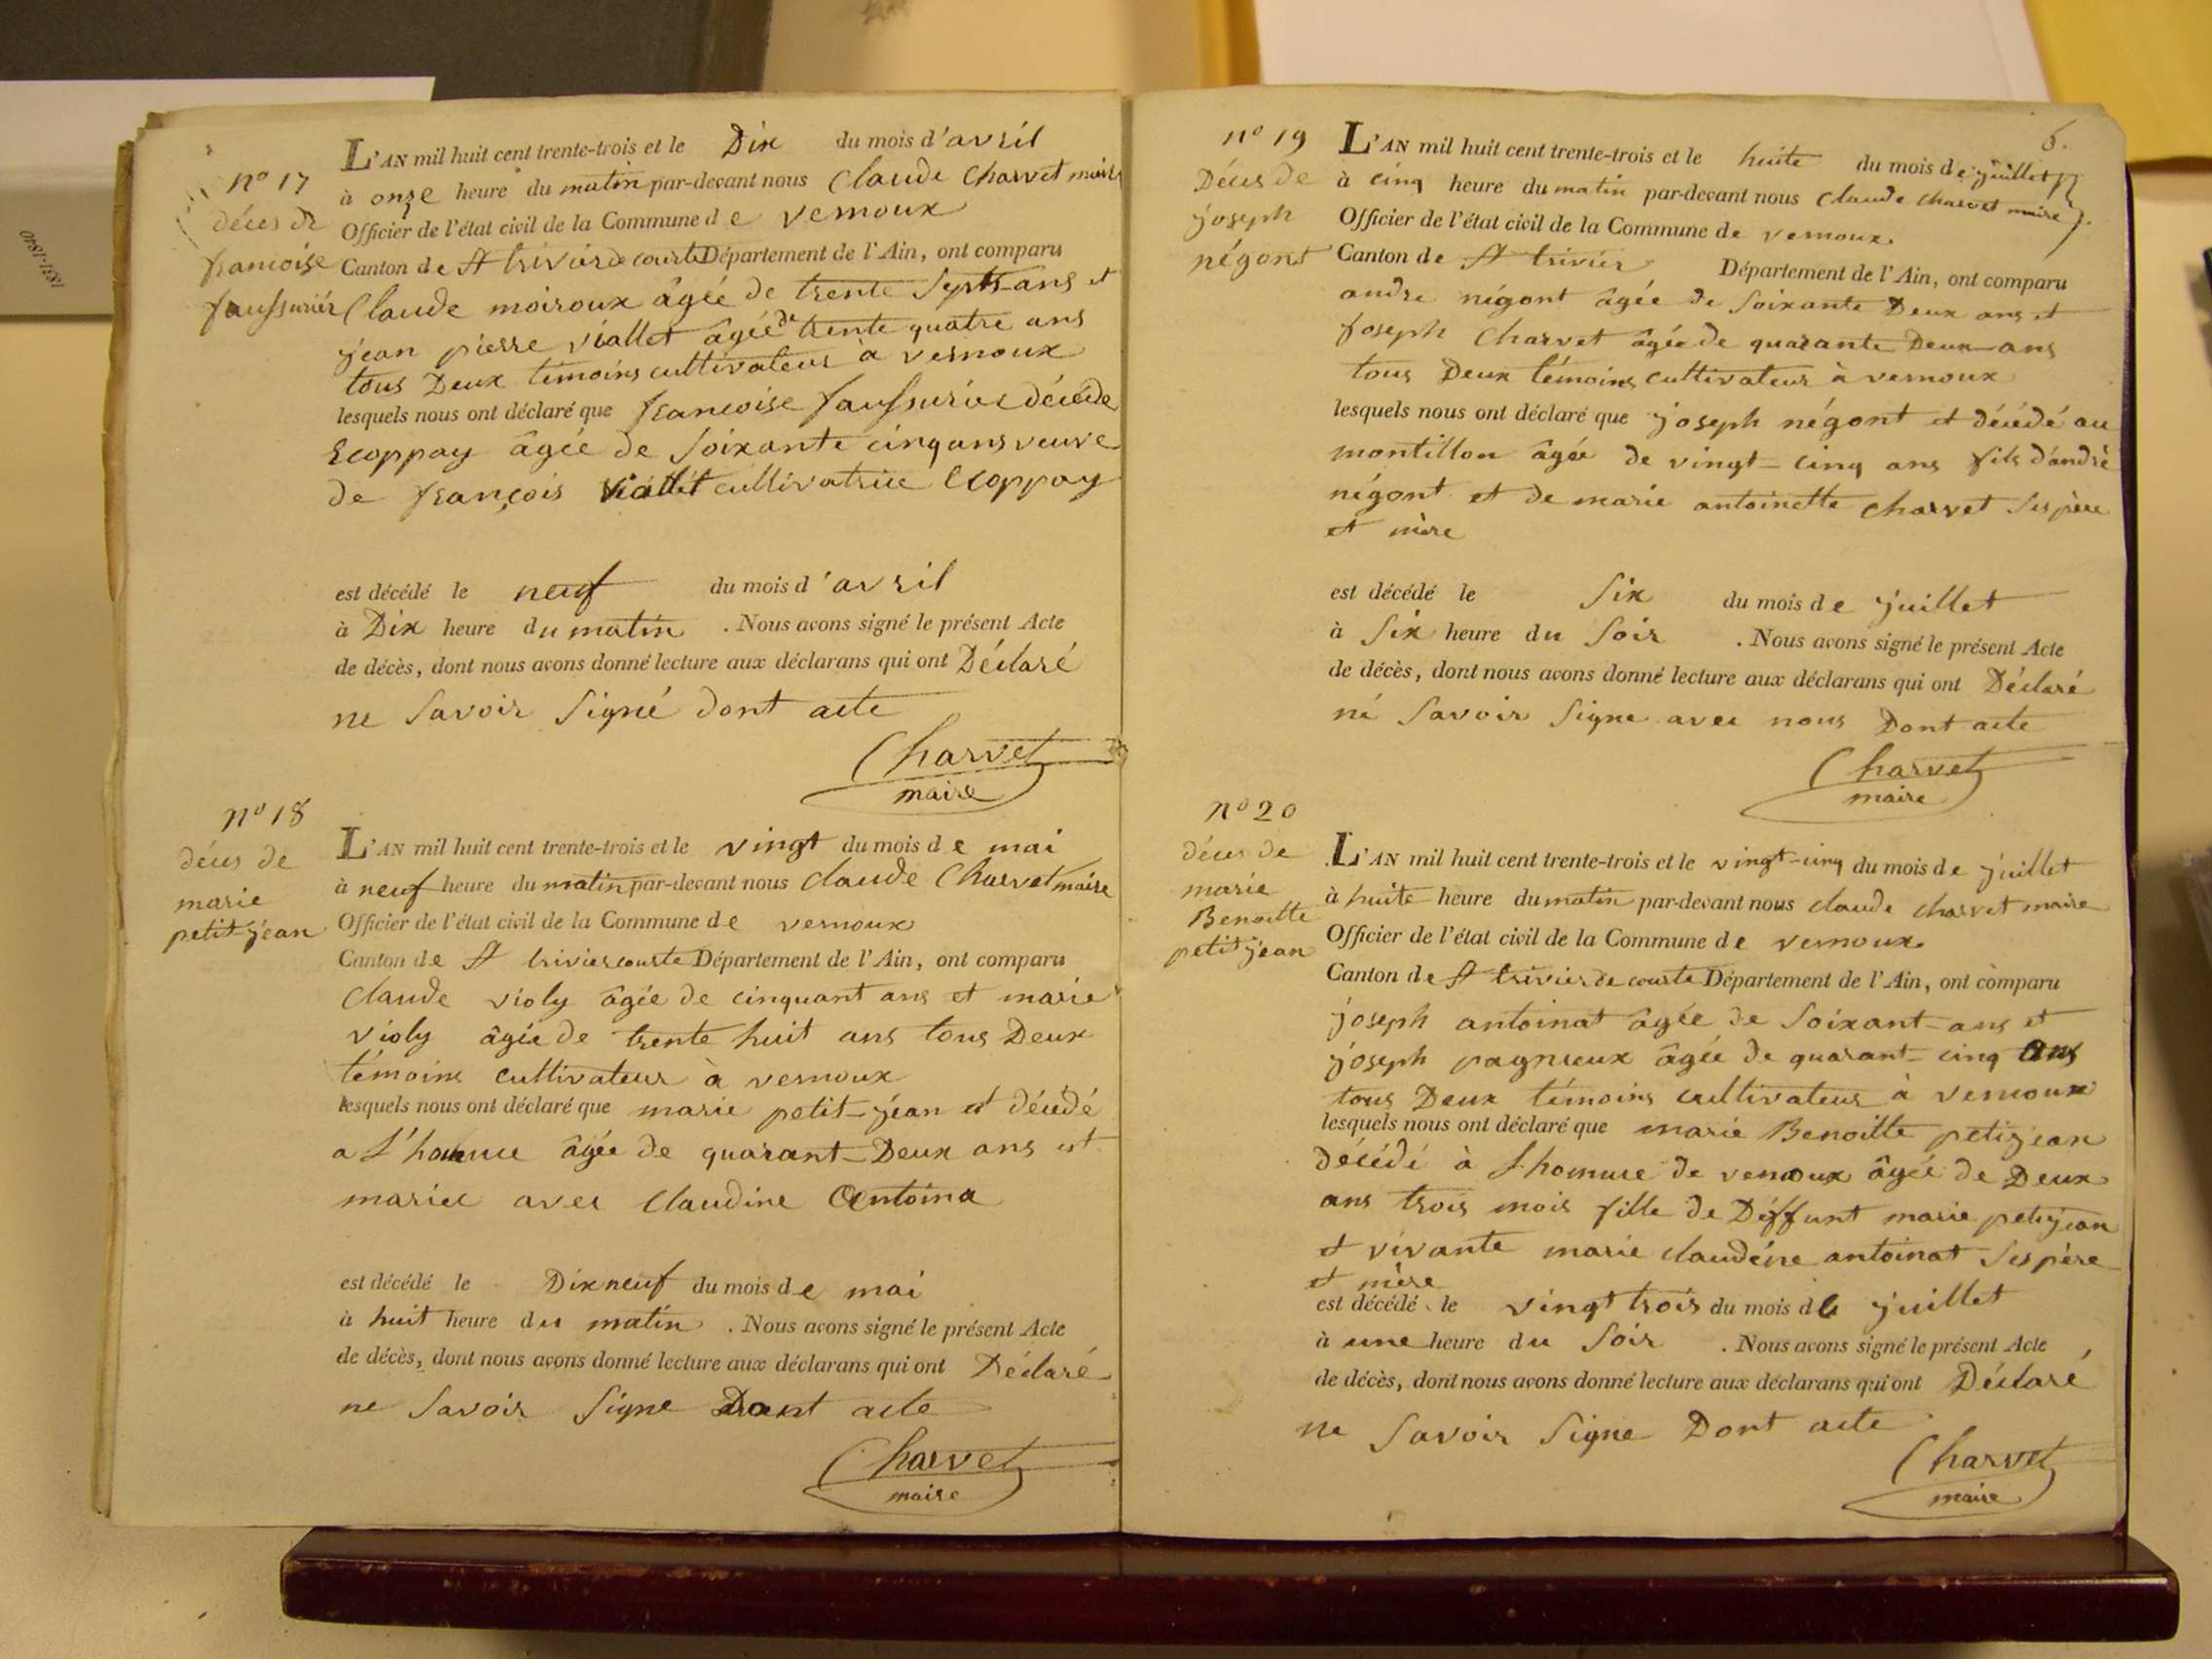 n° 17
décès de
francoise
faussurier
L'AN mil huit cent trente-trois et le Dix du mois d'avril
à onze heure du matin par-devant nous Claude Charvet maire
Officier de l'état civil de la Commune de vernoux
Canton de St trivier de courte Département de l'Ain, ont comparu
Claude moiroux âgée de trente Sept ans et
jean pierre viallet âgée de trente quatre ans
tous Deux témoins cultivateur à vernoux
lesquels nous ont déclaré que francoise faussurier décédé
Ecoppay âgée de Soixante cinq ans veuve
de françois viallet cultivatrice Ecoppay
est décédé le neuf du mois d'avril
à Dix heure du matin . Nous avons signé le présent Acte
de décès, dont nous avons donné lecture aux déclarans qui ont Déclaré
ne Savoir Signé dont acte
Charvet
maire
n° 18
décès de
marie
petit-jean
L'AN mil huit cent trente-trois et le vingt du mois de mai
à neuf heure du matin par-devant nous claude Charvet maire
Officier de l'état civil de la Commune de vernoux
Canton de St trivier courte Département de l'Ain, ont comparu
Claude violy âgée de cinquant ans et marie
violy âgée de trente huit ans tous Deux
témoins cultivateur à vernoux
lesquels nous ont déclaré que marie petit-jean et décédé
a âgée de quarant-Deux ans et
mariee avec Claudine Antoina
est décédé le Dixneuf du mois de mai
à huit heure du matin . Nous avons signé le présent Acte
de décès, dont nous avons donné lecture aux déclarans qui ont Déclaré
ne Savoir Signe Dont acte
Charvet
maire
6.
n° 19
Décès de
joseph
négont
L'AN mil huit cent trente-trois et le huite du mois de juillet
à cinq heure du matin par-devant nous Claude Charvet maire
Officier de l'état civil de la Commune de vernoux
Canton de St trivier Département de l'Ain, ont comparu
andre négont âgée de Soixante Deux ans et
joseph Charvet âgée de quarante Deux ans
tous Deux témoins cultivateur à vernoux
lesquels nous ont déclaré que joseph négont et décédé au
montillon âgée de vingt-cinq ans fils d'andré
négont et de marie antoinette Charvet Ses père
et mère
est décédé le Six du mois de juillet
à Six heure du Soir . Nous avons signé le présent Acte
de décès, dont nous avons donné lecture aux déclarans qui ont Déclaré
né Savoir Signe avec nous Dont acte
Charvet
maire
n° 20
décès de
marie
Benoitte
petitjean
L'AN mil huit cent trente-trois et le vingt-cinq du mois de juillet
à huite heure du matin par-devant nous claude charvet maire
Officier de l'état civil de la Commune de vernoux
Canton de St trivier de courte Département de l'Ain, ont comparu
joseph antoinat âgée de Soixant-ans et
joseph pagneux âgée de quarant-cinq ans
tous Deux témoins cultivateur à vernoux
lesquels nous ont déclaré que marie Benoitte petijean
décédé à de vernoux âgée de Deux
ans trois mois fille de Déffunt marie petijean
et vivante marie claudéine antoinat Ses père
et mère
est décédé le vingt trois du mois de juillet
à une heure du Soir . Nous avons signé le présent Acte
de décès, dont nous avons donné lecture aux déclarans qui ont Déclaré
ne Savoir Signe Dont acte
Charvet
maire
1831-1840